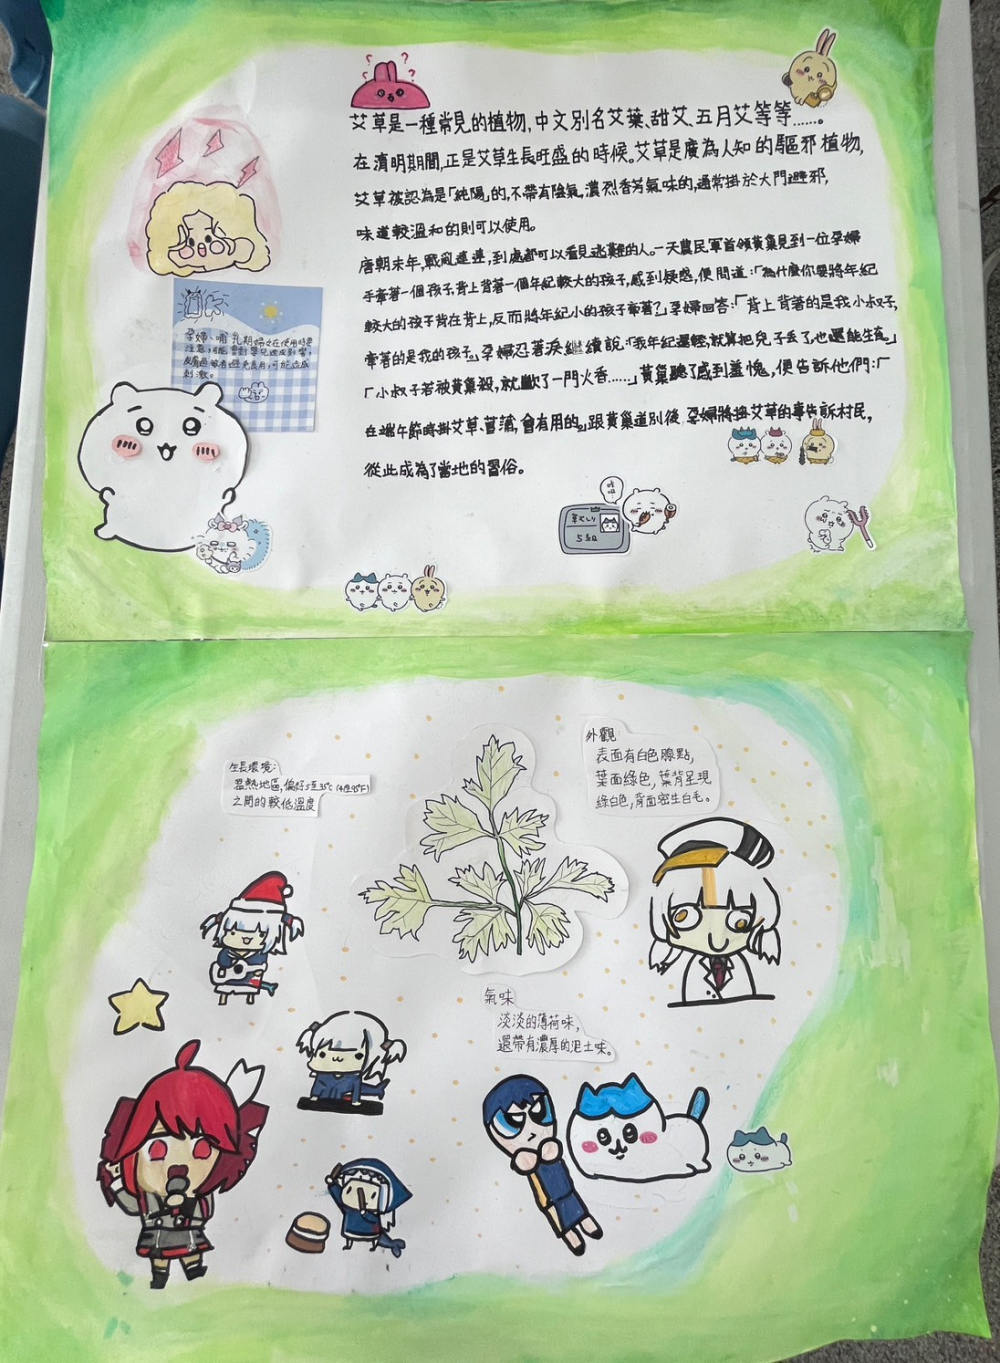 艾草是一種常見的植物,中文別名艾葉、甜艾、五月艾等等……。
在清明期間,正是艾草生長旺盛的時候。艾草是廣為人知的驅邪植物,
艾草被認為是「純陽」的,不帶有陰氣,濃烈香芳氣味的,通常掛於大門避邪,
味道較溫和的則可以使用。
唐朝末年,戰亂連連,到處都可以看見逃難的人。一天農民軍首領黃巢見到一位孕婦
手牽著一個孩子背上背著一個年紀較大的孩子,感到疑惑,便問道:「為什麼你要將年紀
較大的孩子背在背上,反而將年紀小的孩子牽著?」孕婦回答:「背上背著的是我小叔子,
牽著的是我的孩子。」孕婦忍著淚繼續說:「我年紀還輕,就算把兒子丟了也還能生養」
「小叔子若被黃巢殺,就斷了一門火香……」黃巢聽了感到羞愧,便告訴他們:「
在端午節時掛艾草、菖蒲,會有用的。」跟黃巢道別後,孕婦將掛艾草的事告訴村民,
從此成為了當地的習俗。
孕婦、哺乳期婦女在使用時要
注意,可能會對嬰兒造成影響,
皮膚過敏者避免食用,可能造成
刺激。
5級
生長環境:
悶熱地區,偏好5至35℃(41至95℉)
之間的較低溫度
外觀
表面有白色腺點,
葉面綠色,葉背呈現
綠白色,背面密生白毛。
氣味
淡淡的薄荷味,
還帶有濃厚的泥土味。